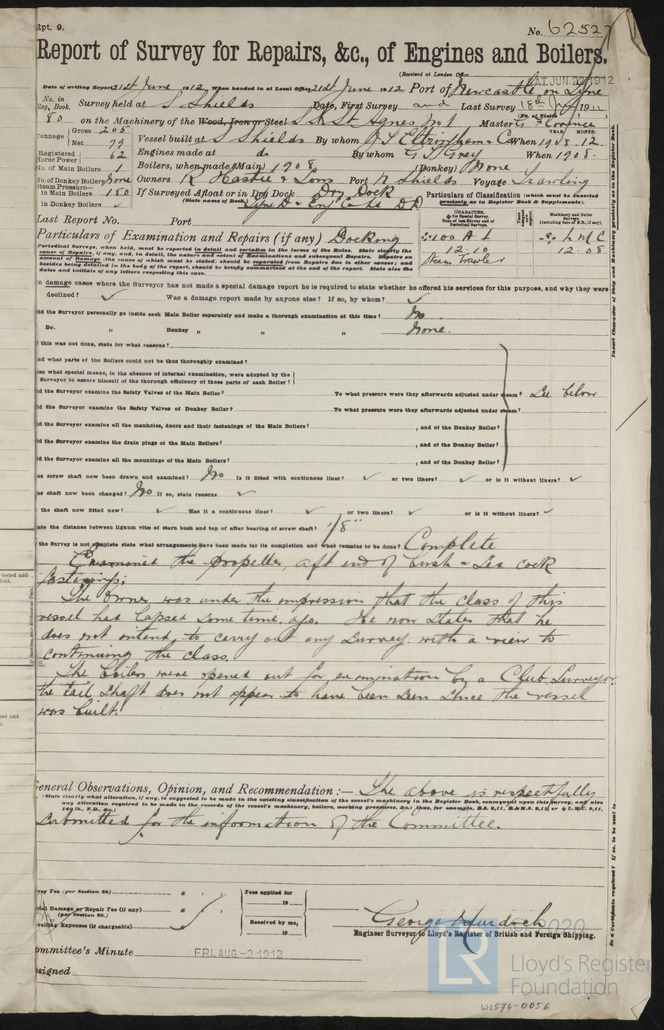 Rpt. 9.
No. 62527
Report of Survey for Repairs, &c., of Engines and Boilers.
(Received at London Office SAT. JUN. 22 1912
Date of writing Report 21st June 1912 When handed in at Local Office 21st June 1912 Port of Newcastle on Tyne
No. in Reg. Book. Survey held at S. Shields Date, First Survey and Last Survey 18th 1912
80 on the Machinery of the Wood, Iron or Steel St Agnes No 1 Master
Tonnage Gross 205 Net 79 Vessel built at S Shields By whom J T Eltringham & Co When 1908. 12.
Registered Horse Power 62 Engines made at do By whom G T Grey When 1908.
No. of Main Boilers 1 Boilers, when made (Main) 1908 (Donkey) None
No. of Donkey Boilers None Owners R Hastie & Sons Port N Shields Voyage Trawling
Steam Pressure in Main Boilers 180 If Surveyed Afloat or in Dry Dock Dry Dock
in Donkey Boilers ✓ (State name of Dock)
Particulars of Classification (which must be inserted precisely as in Register Book & Supplement).
Last Report No. Port
Particulars of Examination and Repairs (if any) Docking
100 A 1
12.10
Steam Trawler
L M C
12.08
In damage cases where the Surveyor has not made a special damage report he is required to state whether he offered his services for this purpose, and why they were
declined? ✓ Was a damage report made by anyone else? If so, by whom? ✓
did the Surveyor personally go inside each Main Boiler separately and make a thorough examination at this time? No
Do. " Donkey " " " None.
if this was not done, state for what reasons?
and what parts of the Boilers could not be thoroughly examined?
also what special means, in the absence of internal examination, were adopted by the
Surveyor to assure himself of the thorough efficiency of those parts of each Boiler?
did the Surveyor examine the Safety Valves of the Main Boiler? To what pressure were they afterwards adjusted under steam? See below
did the Surveyor examine the Safety Valves of Donkey Boiler? To what pressure were they afterwards adjusted under steam?
did the Surveyor examine all the manholes, doors and their fastenings of the Main Boilers? , and of the Donkey Boiler?
did the Surveyor examine the drain plugs of the Main Boilers? , and of the Donkey Boiler?
did the Surveyor examine all the mountings of the Main Boilers? , and of the Donkey Boiler?
has screw shaft now been drawn and examined? No Is it fitted with continuous liner? ✓ or two liners? ✓ or is it without liners? ✓
has shaft now been changed? No If so, state reasons ✓
is the shaft now fitted new? ✓ Has it a continuous liner? ✓ or two liners? ✓ or is it without liners? ✓
state the distance between lignum vitæ of stern bush and top of after bearing of screw shaft? 1/8"
if the Survey is not complete state what arrangements have been made for its completion and what remains to be done? Complete
Examined the propeller, aft end of bush & sea cock
fastenings.
The Owner was under the impression that the class of this
vessel had lapsed some time ago. He now states that he
does not intend to carry out any Survey with a view to
continuing the class.
The boilers were opened out for examination by a Club Surveyor
the tail shaft does not appear to have been seen since the vessel
was built.
General Observations, Opinion, and Recommendation:— The above is respectfully
submitted for the information of the Committee.
Survey Fee (per Section 28) £
Special Damage or Repair Fee (if any) £
(per Section 28.)
Travelling Expenses (if chargeable) £
Fees applied for
19
Received by me,
19
George Murdoch
Engineer Surveyor to Lloyd's Register of British and Foreign Shipping.
Committee's Minute FRI. AUG - 2 1912
Assigned
© 2020
LR
Lloyd's Register
Foundation
W1574-0056